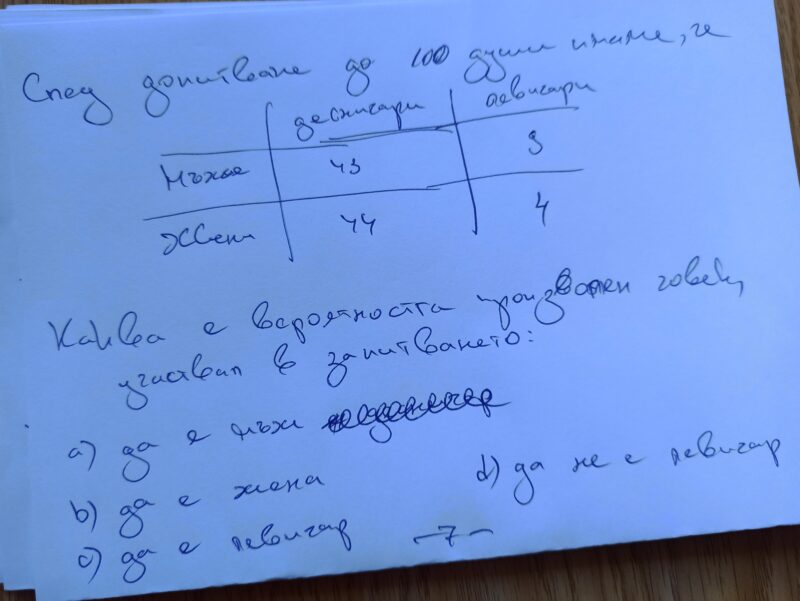 След допитване до 100 души имаме, че
десничари левичари
Мъже 43 9
Жени 44 4
Каква е вероятността произволен човек,
участвал в запитването:
a) да е мъж
b) да е жена
c) да е левичар
d) да не е левичар
-7-